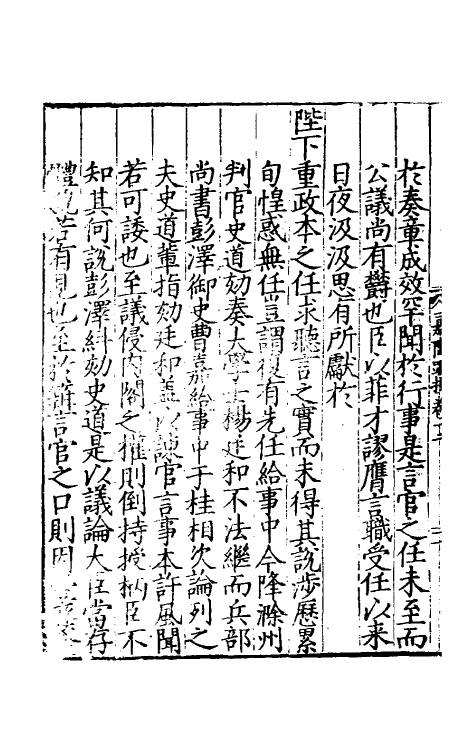 於奏章成效罕聞於行事是言官之任未至而
公議尚有欝也臣以菲才謬膺言職受任以來
日夜汲汲思有所獻於
陛下重政本之任求聽言之實而未得其說涉歷累
旬惶惑無任豈謂復有先任給事中今降滁州
判官史道劾奏大學士楊廷和不法繼而兵部
尚書彭澤御史曹嘉給事中于桂相次論列之
夫史道輩指劾廷和盖以諫官言事本許風聞
若可諉也至議侵内閣之權則倒持授柄臣不
知其何說彭澤糾劾史道是以議論大臣當存
體說若有見也至於擁言官之口則因